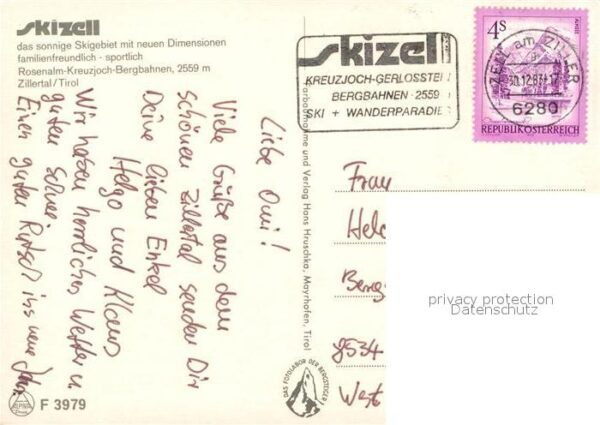 skizell
das sonnige Skigebiet mit neuen Dimensionen
familienfreundlich - sportlich
Rosenalm-Kreuzjoch-Bergbahnen, 2559 m
Zillertal/Tirol
Liebe Omi!
Viele Grüße aus dem
schönen Zillertal senden Dir
Deine lieben Enkel
Helgo und Klaus
Wir haben herrliches Wetter u.
guten Schnee
Einen guten Rutsch ins neue Jahr.
ALPINA
F 3979
Farbaufnahme und Verlag Hans Hruschka, Mayrhofen, Tirol
DAS FOTOLABOR DER BERGSTEIGER
skizell
KREUZJOCH-GERLOSSTEIN
BERGBAHNEN · 2559
SKI + WANDERPARADIES
4S
REPUBLIK ÖSTERREICH
ZELL am ZILLER
30.12.83-17
6280
Frau
Hel
Berg
8534
West
privacy protection
Datenschutz